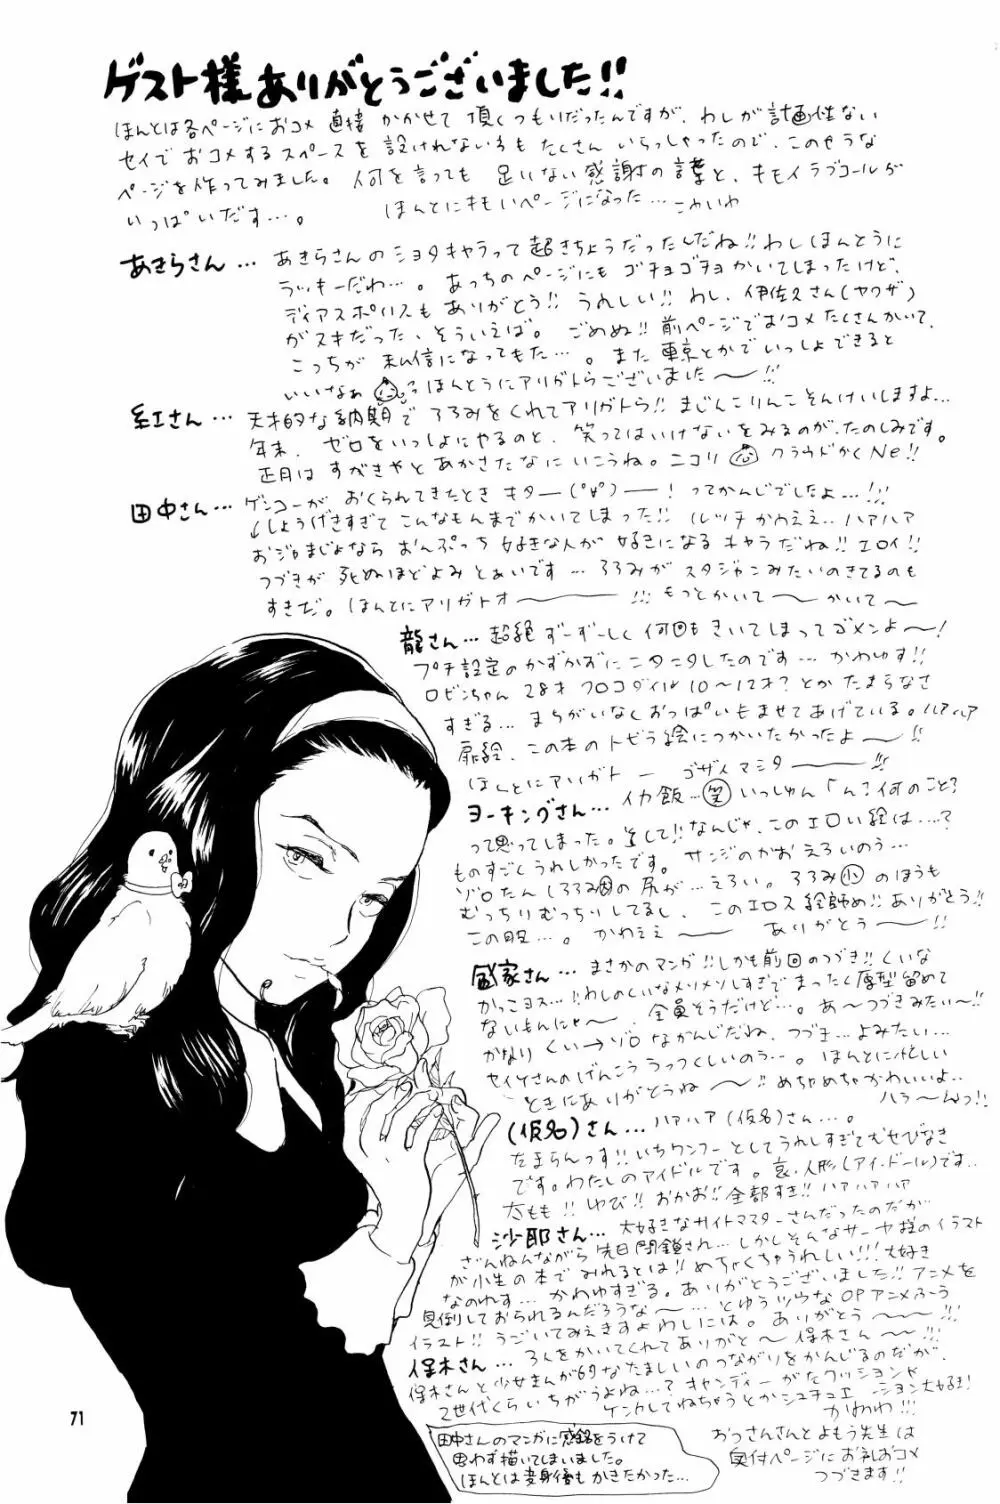 ゲスト様ありがとうございました!!
ほんとは各ページにおコメ直接かかせて頂くつもりだったんですが、わしが計画性ない
セイでおコメするスペースを設けれない名もたくさんいらっしゃったので、このような
ページを作ってみました。何を言っても足りない感謝の言葉と、キモイラブコールが
いっぱいだす…。 ほんとにキもいページになった…こわいわ
あきらさん… あきらさんのショタキャラって超きちょうだったしだね!!わしほんとうに
ラッキーだわ…。あっちのページにもゴチョゴチョかいてしまったけど、
ディアスポリスもありがとう!!うれしい!!わし、伊佐久さん(ヤクザ)
がスキだった、そういえば。ごめぬ!!前ページでおコメたくさんかいて、
こっちが私信になってもた…。また東京とかでいっしょできると
いいなぁ ほんとうにアリガトうございました〜!!
紅さん… 天才的な納期でろろみをくれてアリガトう!! まじんこりんこそんけいしますよ…
年末、ゼロをいっしょにやるのと、笑ってはいけないをみるのが、たのしみです。
正月はすがきやとあかさたなにいこうね。ニコリ クラウドかくNe!!
田中さん… ゲンコーがおくられてきたときキター(゚∀゚)ー!ってかんじでしたよ…!!
↓しょうげきすぎてこんなもんまでかいてしまった!! ルッチかわええ…ハァハァ
おジャまじょならおんぷっち好きな人が好きになるキャラだね!!エロイ!!
つづきが死ぬほどよみとぁいです…ろろみがスタジャンみたいのきてるのも
すきだ。ほんとにアリガトオ〜!!! もっとかいて〜かいて〜
龍さん… 超絶ずーずーしく何回もきいてしまってゴメンよ〜!
プチ設定のかずかずにニタニタしたのです…かわゆす!!
ロビンちゃん28才クロコダイル10〜12才?とかたまらなさ
すぎる…まちがいなくおっぱいもませてあげている。ハァハァ
扉絵、この本のトビラ絵につかいたかったよ〜!!
ほんとにアリガトーゴザイマシター!!
ヨーキングさん… イカ飯…笑いっしゅん「ん?何のこと?
って思ってしまった。そして!!なんじゃ、このエロい絵は…?
ものすごくうれしかったです。サンジのかおえろいのう…
ゾロたん(ろろみ)の尻が…えろい。ろろみ小のほうも
むっちりむっちりしてるし、このエロス絵師め!!ありがとう!!
この目…。かわええー ありがとうー!!
盛家さん… まさかのマンガ!!しかも前回のつづき!!くいな
かっこヨス…!!わしのくいなメソメソしすぎでまったく原型留めて
ないもんにゃ〜、全員そうだけど…。あ〜つづきみたい〜!!
かなりくい→ゾロなかんじだね、つづき…よみたい…
セイケさんのげんこううっつくしいのう…。ほんとに忙しい
ときにありがとうね〜!!めちゃめちゃかわいいよ…
ハラ〜んっ!!
(仮名)さん… ハァハァ(仮名)さん…。
たまらんっす!!いちワンフーとしてうれしすぎてむせびなき
です。わたしのアイドルです。哀・人形(アイ・ドール)です…
太もも!!ゆび!!おかお!!全部すき!!ハァハァハァ
沙耶さん… 大好きなサイトマスターさんだったのだが
ざんねんながら先日閉鎖され…しかしそんなサーヤ様のイラスト
が小生の本でみれるとは!!めちゃくちゃうれしい!!!大好き
なのれす…かわゆすぎる。ありがとうございました!!アニメを
見倒しておられるんだろうな〜…とゆうツウなOPアニメふーう
イラスト!!うごいてみえますよわしには。ありがとう〜!!!
保木さん… 3人をかいてくれてありがと〜保木さん〜!!!
保木さんと少女まんが的なたましいのつながりをかんじるのだが、
2世代くらいちがうよね…?キャンディーがたクッションや
ケンカしてねちゃうとかシュチュエーション大好き!
かわわ!!
おっさんさんとよもう先生は
奥付ページにお礼おコメ
つづきます!!
田中さんのマンガに感銘をうけて
思わず描いてしまいました。
ほんとは変身後もかきたかった…
71